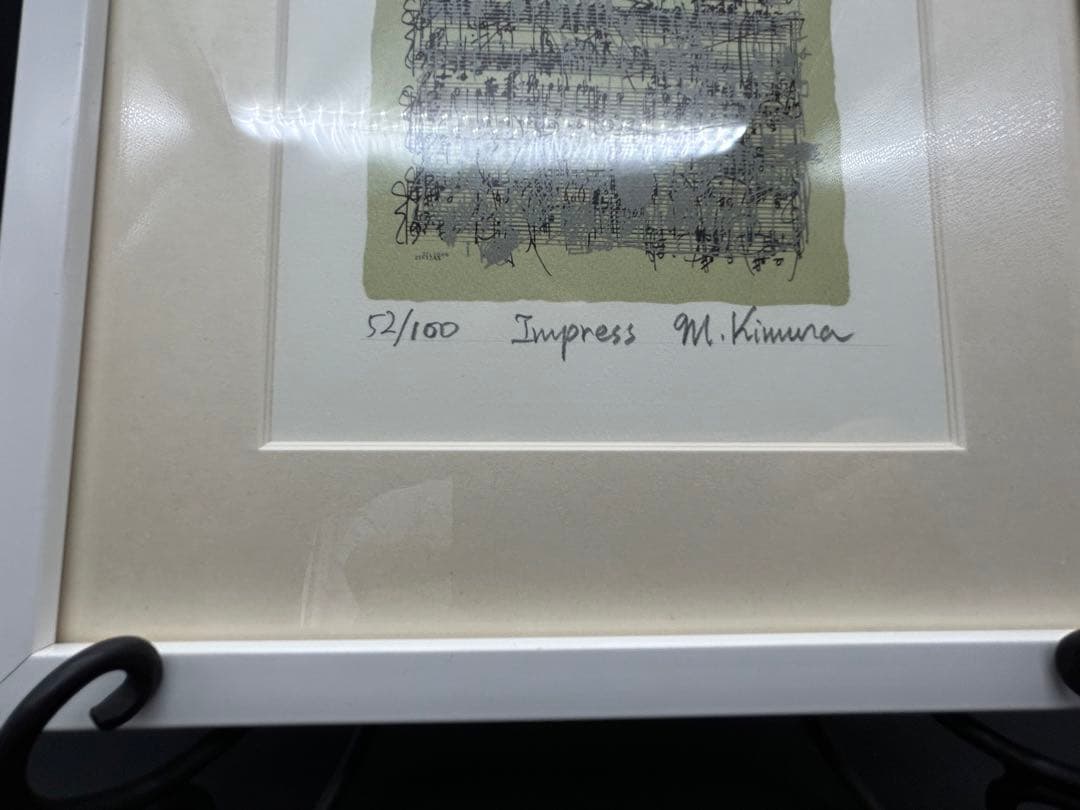 52/100 Impress M. Kimura